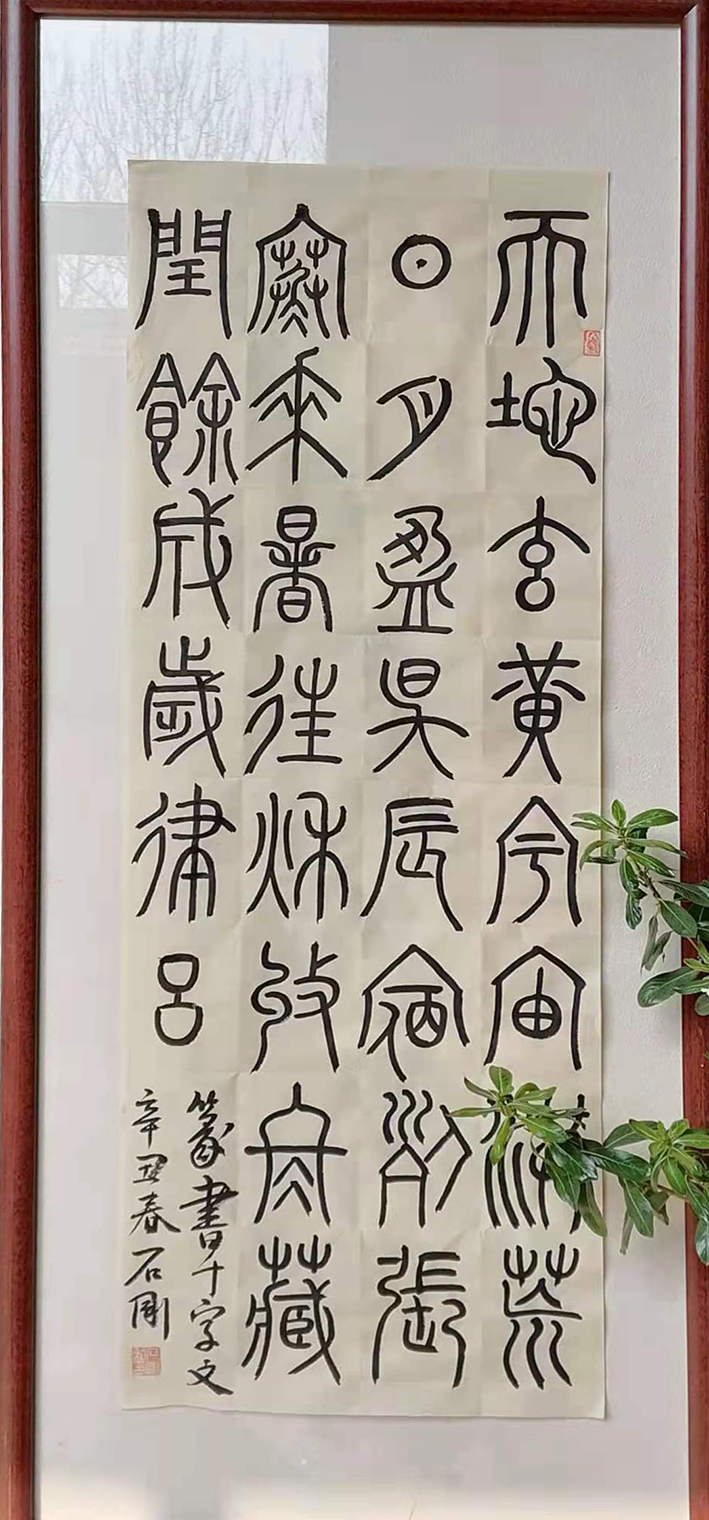 天地玄黃宇宙洪荒
日月盈昃辰宿列張
寒來暑往秋收冬藏
閏餘成歲律呂
篆書千字文
辛丑春石刚